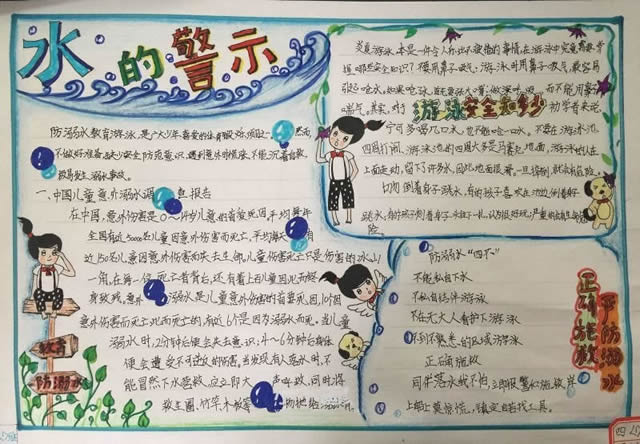 水的警示
防溺水教育游泳,是广大少年喜爱的体育锻炼项目之一。然而,
不做好准备、缺少安全防范意识,遇到意外时慌张,不能沉着自救,
一、中国儿童意外溺水调 报告
在中国,意外伤害是0~14岁儿童的首要死因,平均每年
全国有近50000名儿童因意外伤害而死亡,平均每天 有
近150名儿童因意外伤害而失去生命,儿童伤害死亡只是伤害的冰山
一角,在每一位死亡者背后,还有着上百儿童因此而终
身致残。意外 溺水是儿童意外伤害的首要死因,10个因
意外伤害而死亡 的,有近6个是因为溺水而 儿童
溺水时,2分钟后便会失去意识,4~6分钟后身体
便会遭受不可逆转的伤害。当发现有人落水时,不
能冒然下水营救,应立即大 声呼救,同时将
救生圈,竹竿,木板等 物抛给
教育
防溺水
炎夏游泳,本是一件令人 的事情,在游泳中究竟需要掌
握哪些安全知识?不要用鼻子吸气:游泳时用鼻子吸气,很容易
引起呛水,如果呛水,
游泳安全知多少
初学者来说,
宁可多喝几口水,也不能呛一口水。不要在游泳池
四周打闹,游泳池的四周大多是马赛克地面,游泳时的人在
上面走动,留下了许多水,因此地面很滑。一旦摔倒,就会有危险。
切勿倒着身子跳水,有的孩子喜欢在池边倒着身子
跳水,有的孩子倒着身子 以为很好玩,
险。
防溺水“四不”
不能私自下水
不私自结伴游泳
不在无大人看护下游泳
不到不熟悉的区域游泳
正确施救
同伴落水我不怕,立即报警和施救,岸
上船上莫惊慌,镇定自若找工具。
严防溺水
正确施救